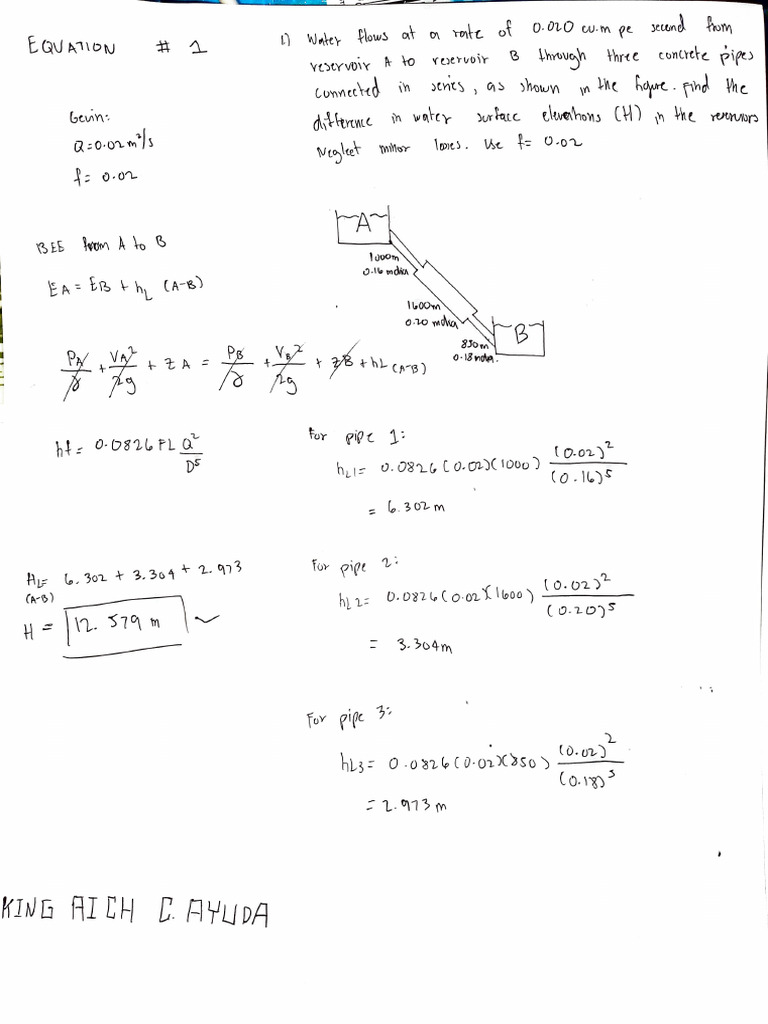 EQUATION # 1
1) Water flows at a rate of 0.020 cu.m pe second from
reservoir A to reservoir B through three concrete pipes
connected in series, as shown in the figure. Find the
difference in water surface elevations (H) in the reservoirs
Neglect minor losses. Use f= 0.02
Gevin:
Q=0.02m³/s
f= 0.02
A
1000m
0.16 mdia
1600m
0.20 mdia
B
850m
0.18mdia.
BEE from A to B
EA = EB + hL (A-B)
PA/γ + VA²/2g + zA = PB/γ + VB²/2g + zB + hL (A-B)
hf = 0.0826 FL Q²/D⁵
For pipe 1:
hL1= 0.0826 (0.02)(1000) (0.02)²/(0.16)⁵
= 6.302 m
For pipe 2:
hL2= 0.0826(0.02)(1600) (0.02)²/(0.20)⁵
= 3.304m
For pipe 3:
hL3= 0.0826(0.02)(850) (0.02)²/(0.18)⁵
= 2.973 m
HL= 6.302 + 3.304 + 2.973
(A-B)
H = 12.579 m
KING AICH C. AYUDA